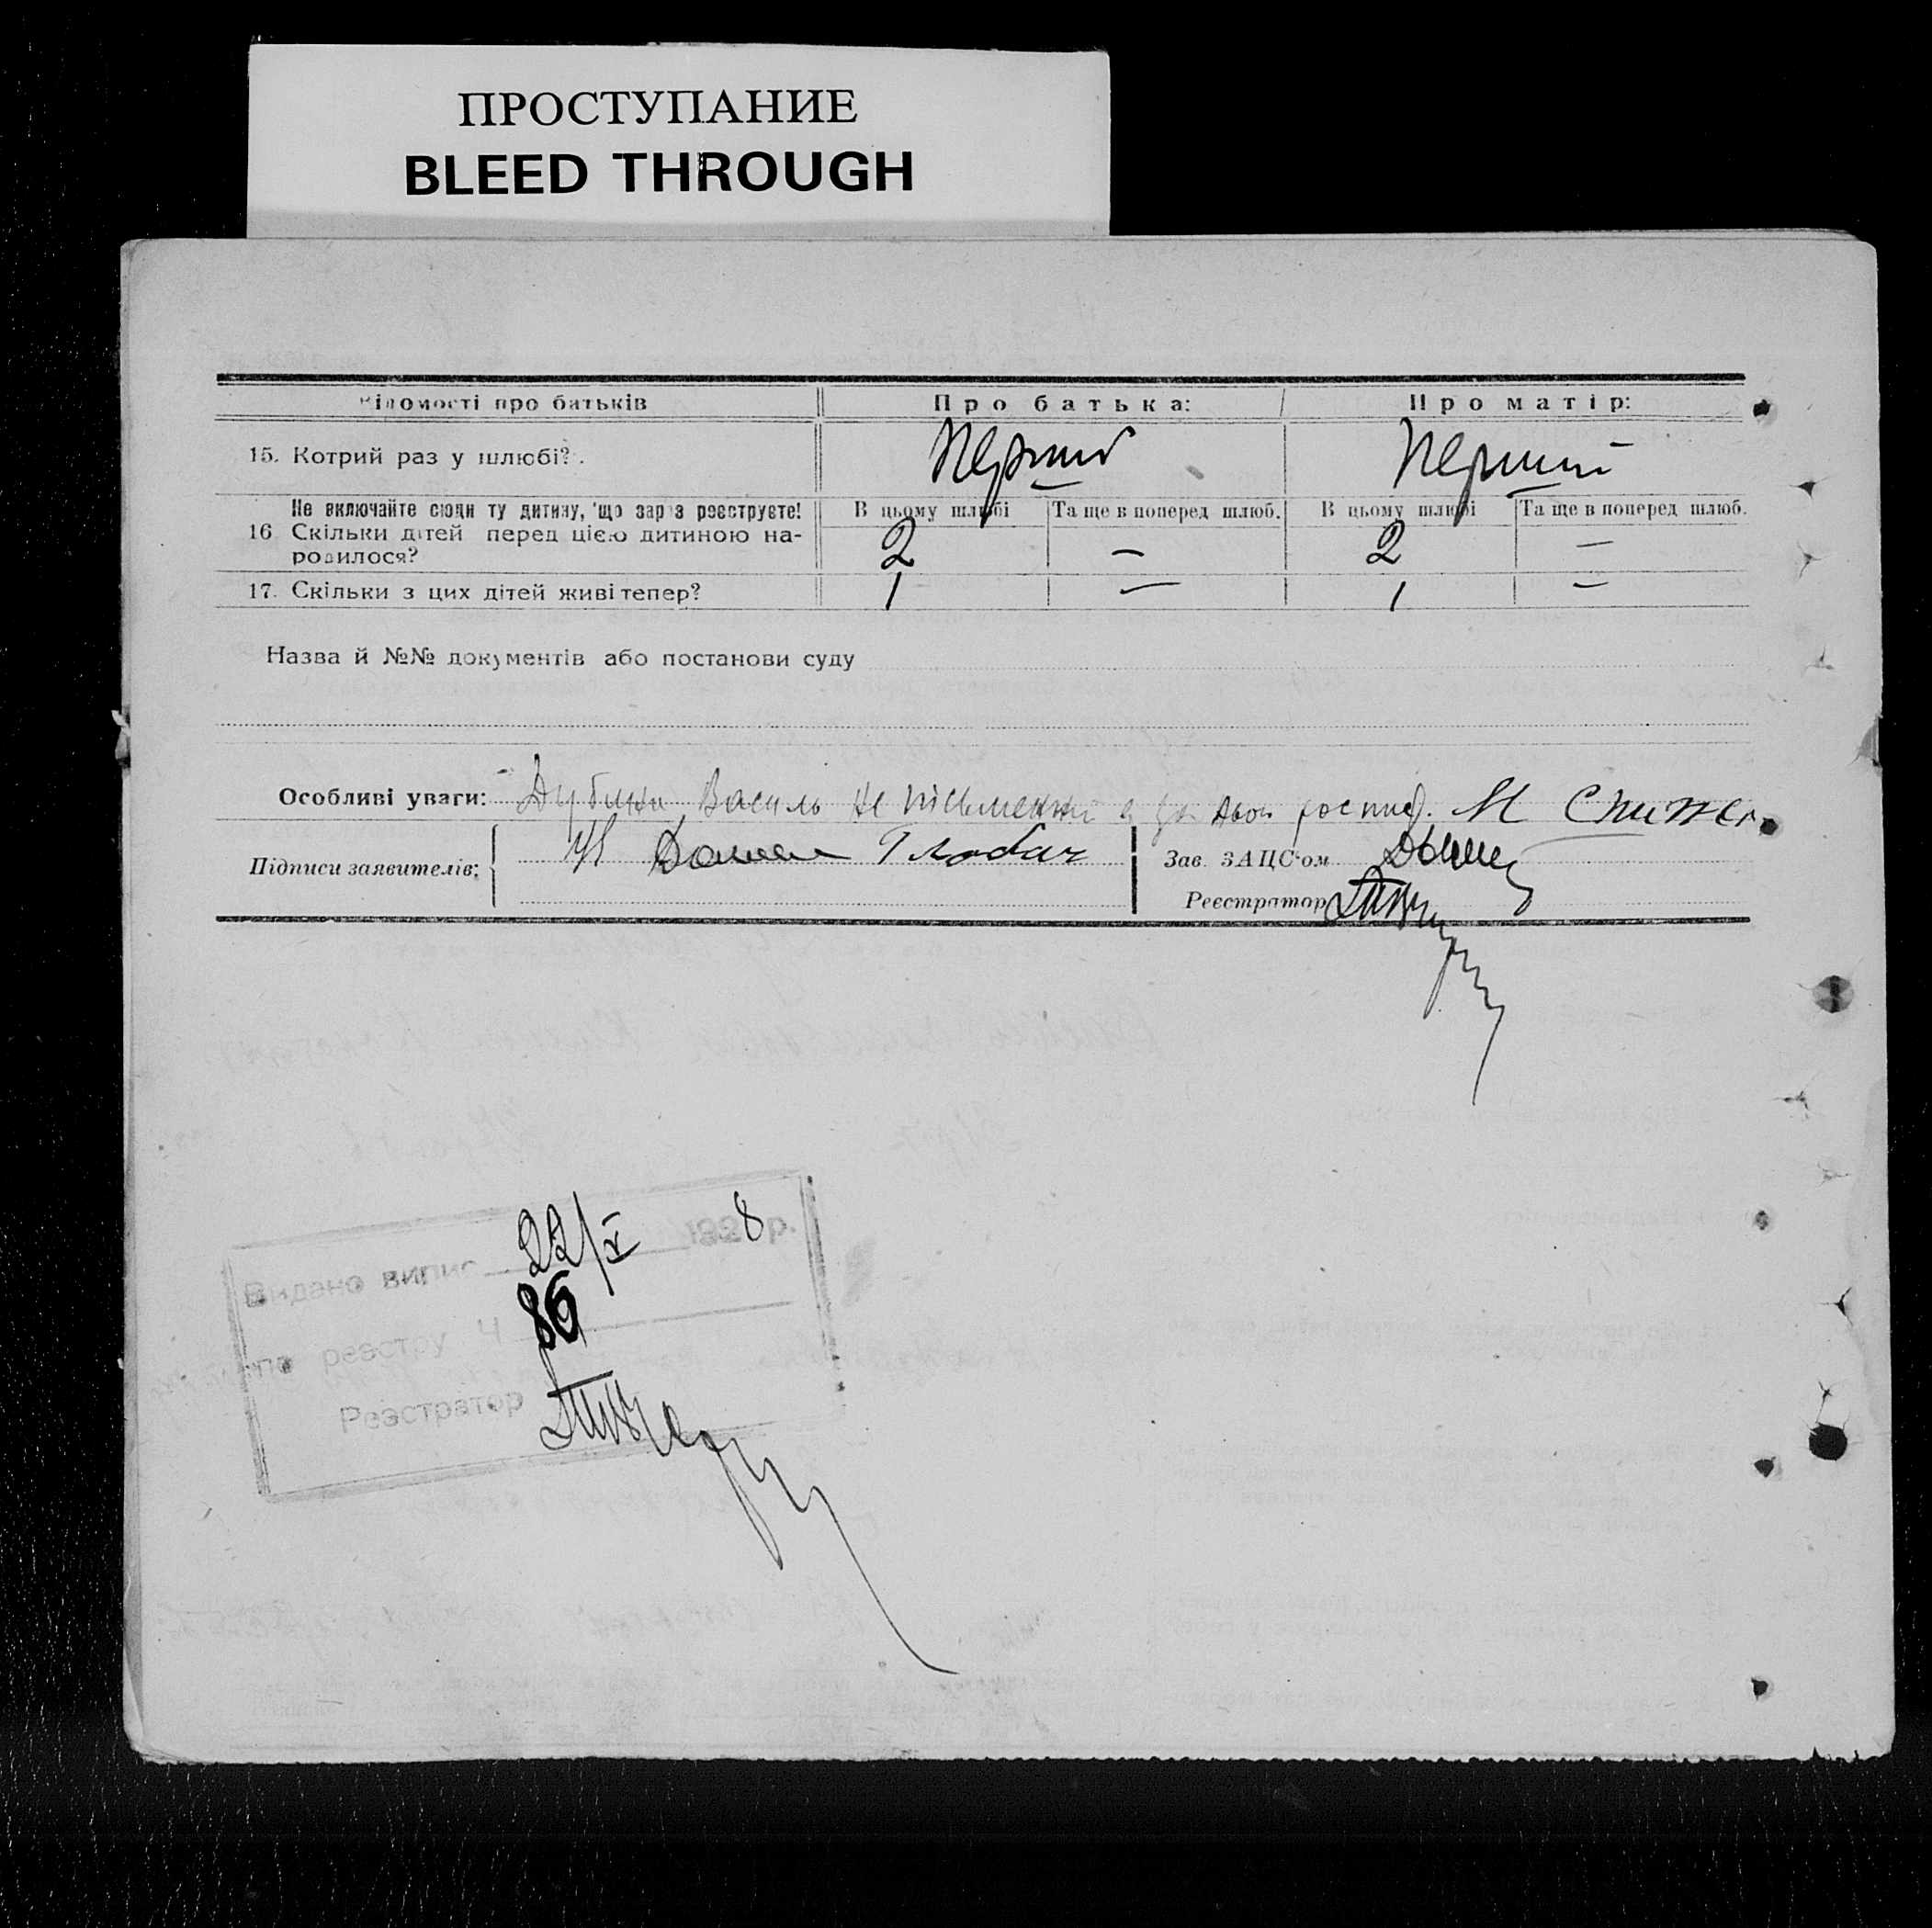 ПРОСТУПАНИЕ
BLEED THROUGH
Відомості про батьків Про батька: Про матір:
15. Котрий раз у шлюбі? Перший Перший
Не включайте сюди ту дитину, що зараз реєструєте! В цьому шлюбі Та ще в поперед шлюб. В цьому шлюбі Та ще в поперед шлюб.
16 Скільки дітей перед цією дитиною на-
родилося? 2 — 2 —
17. Скільки з цих дітей живі тепер? 1 — 1 —
Назва й №№ документів або постанови суду
Особливі уваги: Дубина Василь не письменний а
Підписи заявителів: Глобач Зав. ЗАЦС'ом
Реєстратор
Видано випис 22/V 1928 р.
по реєстру Ч 86
Реєстратор